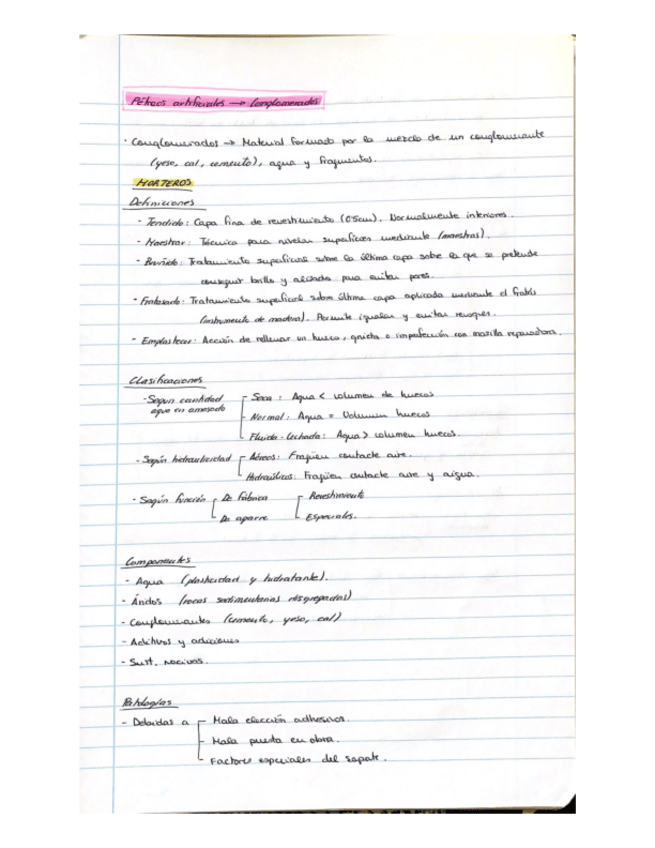 Pétreos artificiales → Conglomerados
· Conglomerados → Material formado por la mezcla de un conglomerante
(yeso, cal, cemento), agua y fragmentos.
MORTEROS
Definiciones
- Tendido: Capa fina de revestimiento (0'5cm). Normalmente interiores.
- Maestrear: Técnica para nivelar superficies mediante (maestras).
- Bruñido: Tratamiento superficial sobre la última capa sobre la que se pretende
conseguir brillo y alisado para evitar poros.
- Fratasado: Tratamiento superficial sobre última capa aplicada mediante el fratás
(instrumento de madera). Permite igualar y evitar
- Emplastecer: Acción de rellenar un hueco, grieta o imperfección con masilla reparadora.
Clasificaciones
- Según cantidad
agua en amasado
Seca: Agua < volumen de huecos
Normal: Agua = Volumen huecos
Fluida-lechada: Agua > volumen huecos.
- Según hidraulicidad
Aéreos: Fragüen contacto aire.
Hidraúlicos: Fragüen contacto aire y agua.
- Según función
De fábrica
De agarre
Revestimiento
Especiales.
Componentes
- Agua (plasticidad y hidratante).
- Áridos (rocas sedimentarias disgregadas)
- Conglomerantes (cemento, yeso, cal)
- Aditivos y adiciones
- Sust. nocivas.
Patologías
- Debidas a
Mala elección adhesivos.
Mala puesta en obra.
Factores especiales del soporte.